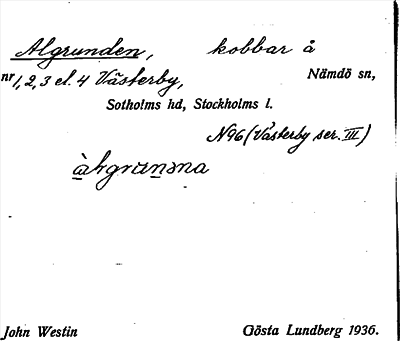 Algrunden, kobbar å
nr 1, 2, 3 el. 4 Västerby, Nämdö sn,
Sotholms hd, Stockholms l.
N96 (Västerby ser. III)
John Westin Gösta Lundberg 1936.